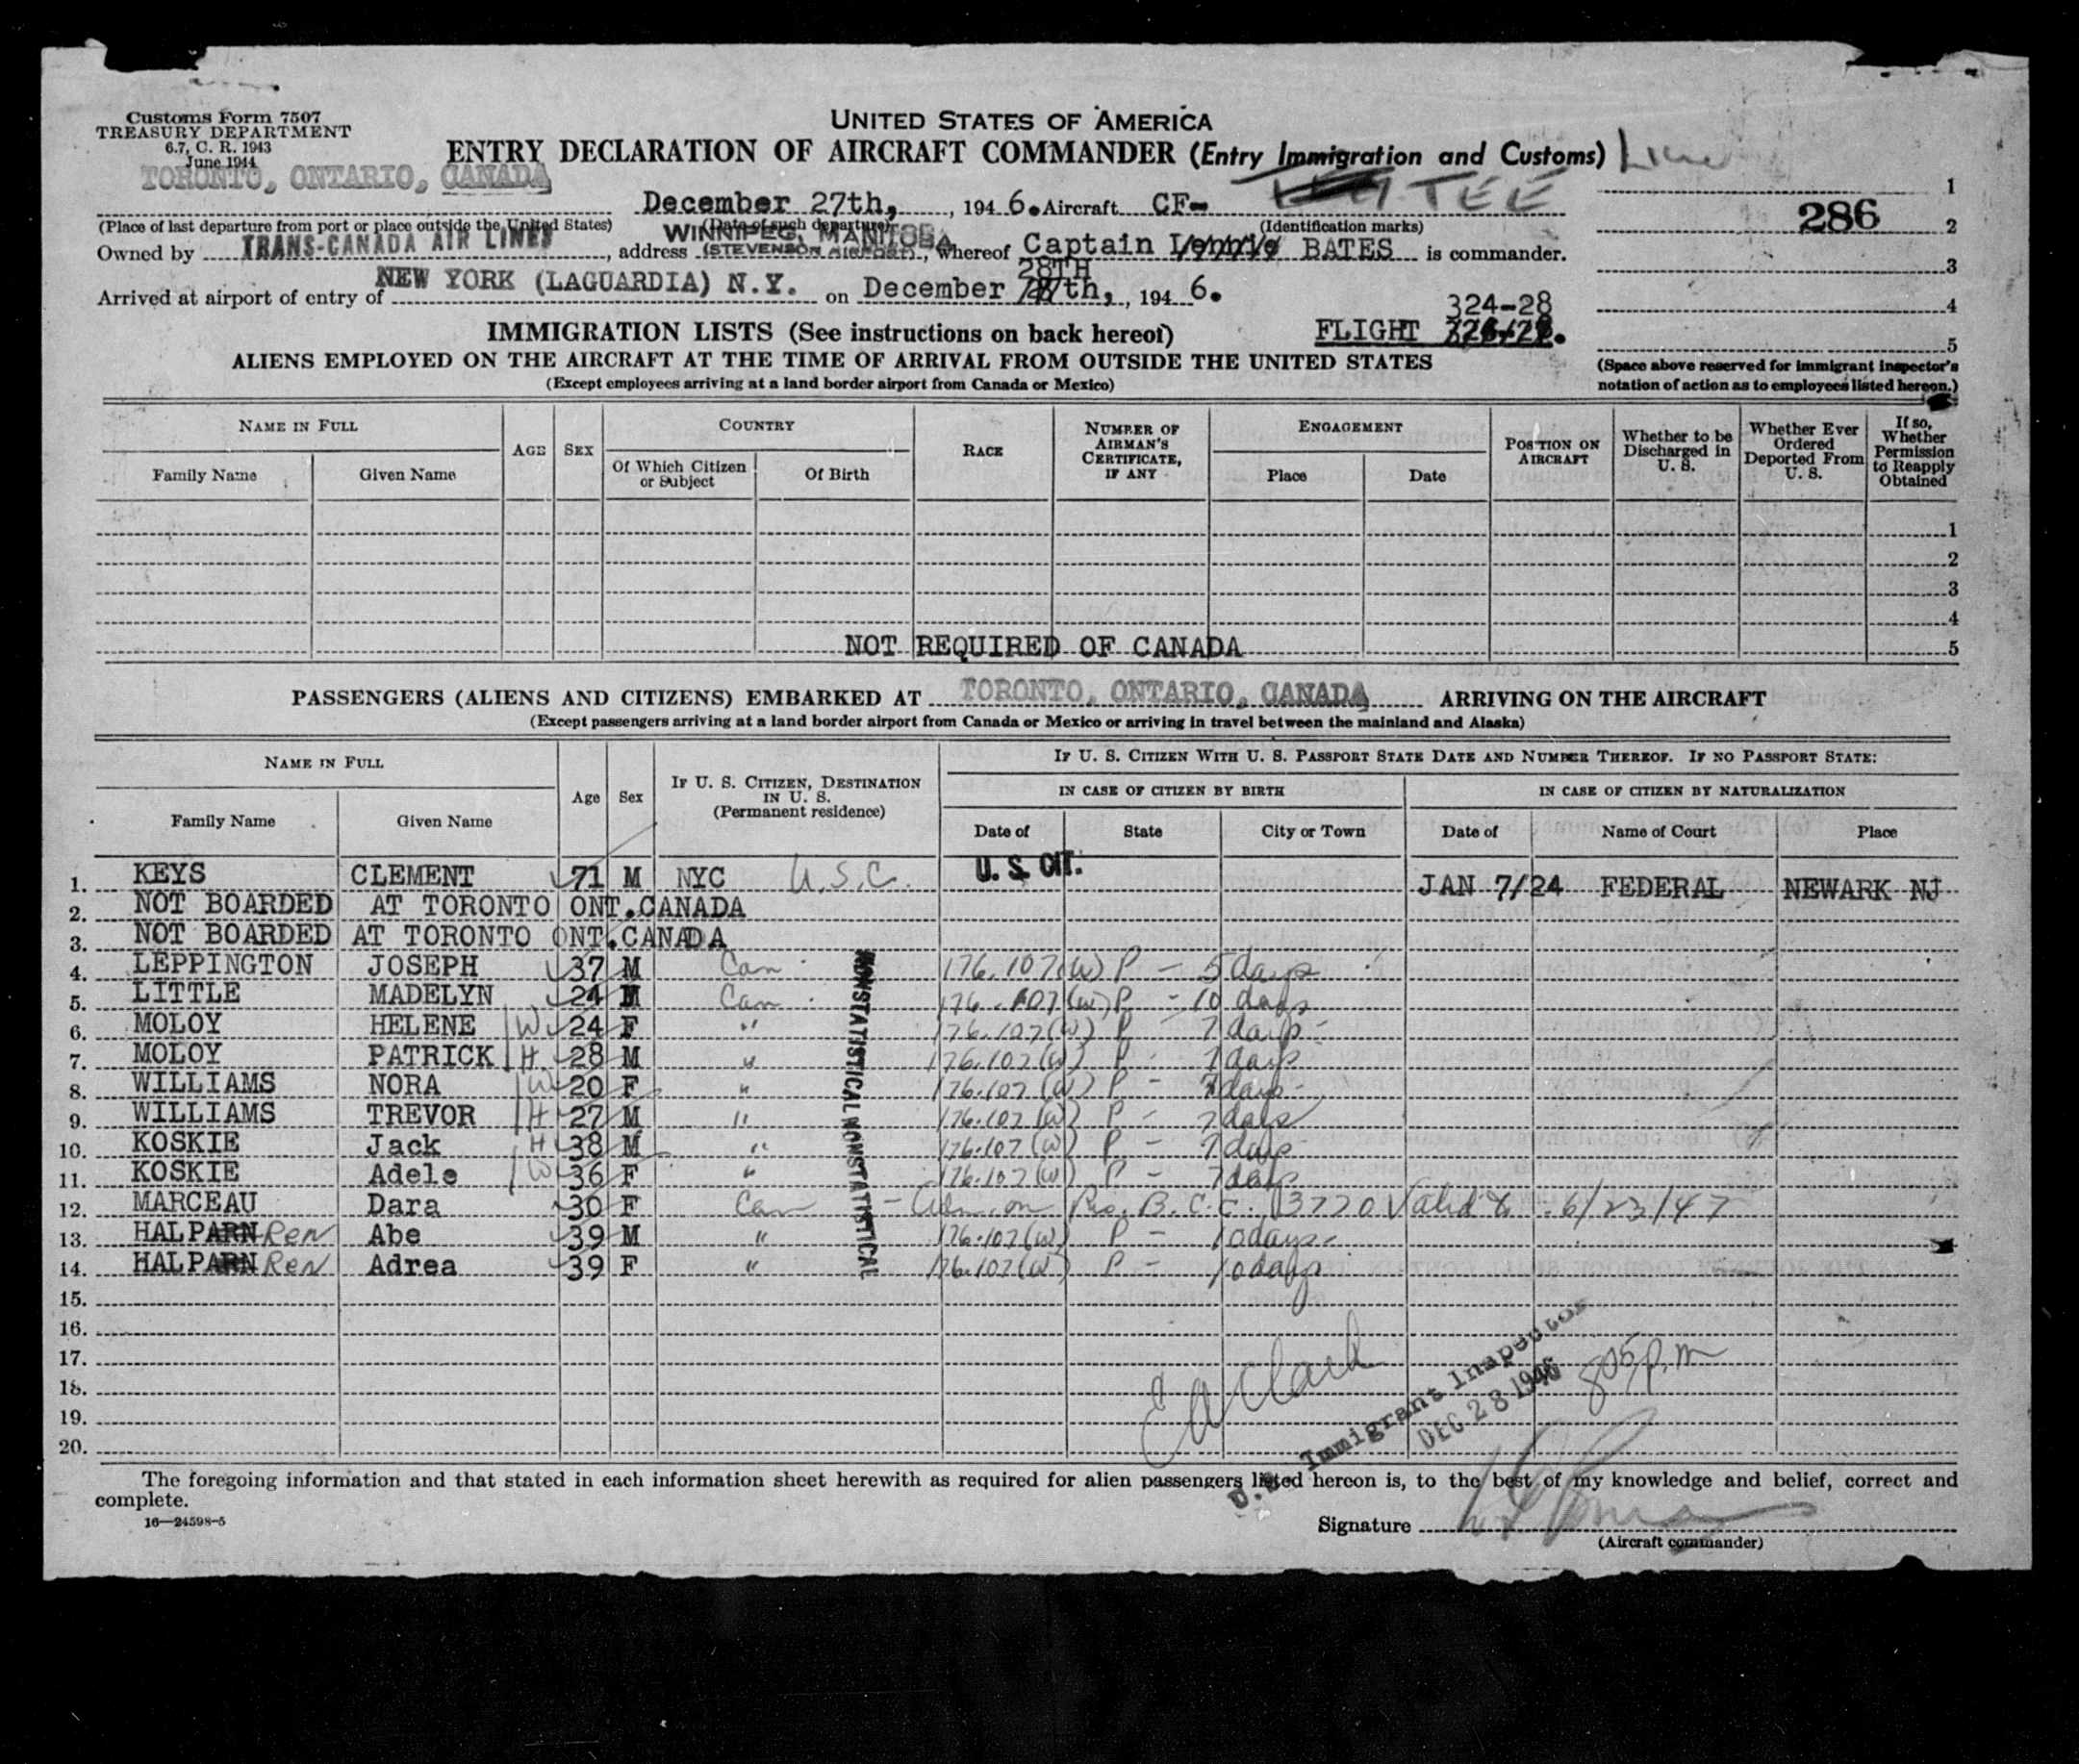 Customs Form 7507
TREASURY DEPARTMENT
6.7, C. R. 1943
June 1944
UNITED STATES OF AMERICA
ENTRY DECLARATION OF AIRCRAFT COMMANDER (Entry Immigration and Customs)
TORONTO, ONTARIO, CANADA
December 27th, , 194 6. Aircraft CF- TEE
1
(Place of last departure from port or place outside the United States) (Date of such departure) (Identification marks)
286 2
WINNIPEG, MANITOBA
Owned by TRANS-CANADA AIR LINES , address (STEVENSON AIRPORT) , whereof Captain BATES is commander.
3
28TH
Arrived at airport of entry of NEW YORK (LAGUARDIA) N.Y. on December th, , 194 6.
4
324-28
IMMIGRATION LISTS (See instructions on back hereof) FLIGHT
5
ALIENS EMPLOYED ON THE AIRCRAFT AT THE TIME OF ARRIVAL FROM OUTSIDE THE UNITED STATES
(Except employees arriving at a land border airport from Canada or Mexico)
(Space above reserved for immigrant inspector's
notation of action as to employees listed hereon.)
NAME IN FULL
Family Name Given Name
AGE SEX
COUNTRY
Of Which Citizen or Subject Of Birth
RACE
NUMBER OF AIRMAN'S CERTIFICATE, IF ANY
ENGAGEMENT
Place Date
POSITION ON AIRCRAFT
Whether to be Discharged in U. S.
Whether Ever Ordered Deported From U. S.
If so, Whether Permission to Reapply Obtained
1
2
3
4
NOT REQUIRED OF CANADA 5
PASSENGERS (ALIENS AND CITIZENS) EMBARKED AT TORONTO, ONTARIO, CANADA ARRIVING ON THE AIRCRAFT
(Except passengers arriving at a land border airport from Canada or Mexico or arriving in travel between the mainland and Alaska)
NAME IN FULL
Family Name Given Name
Age Sex
IF U. S. CITIZEN, DESTINATION IN U. S. (Permanent residence)
IF U. S. CITIZEN WITH U. S. PASSPORT STATE DATE AND NUMBER THEREOF. IF NO PASSPORT STATE:
IN CASE OF CITIZEN BY BIRTH IN CASE OF CITIZEN BY NATURALIZATION
Date of State City or Town Date of Name of Court Place
1. KEYS CLEMENT 71 M NYC U.S.C. U. S. CIT. JAN 7/24 FEDERAL NEWARK NJ
2. NOT BOARDED AT TORONTO ONT.CANADA
3. NOT BOARDED AT TORONTO ONT.CANADA
4. LEPPINGTON JOSEPH 37 M Can 176.107(W) P - 5 days
5. LITTLE MADELYN 24 Can 176.107(W) P - 10 days
6. MOLOY HELENE W 24 F " 176.107(W) P - 7 days
7. MOLOY PATRICK H 28 M " 176.107(W) P - 7 days
8. WILLIAMS NORA W 20 F " 176.107(W) P - 7 days
9. WILLIAMS TREVOR H 27 M " 176.107(W) P - 7 days
10. KOSKIE Jack H 38 M " 176.107(W) P - 7 days
11. KOSKIE Adele W 36 F " 176.107(W) P - 7 days
12. MARCEAU Dara 30 F Can - Adm. on Res. B.C.C. 13770 Valid to 6/23/47
13. HALPARN Ren Abe 39 M " 176.107(W) P - 10 days
14. HALPARN Ren Adrea 39 F " 176.107(W) P - 10 days
NONSTATISTICAL NONSTATISTICAL
15.
16.
17.
18.
19.
20.
E A Clark
U.S. Immigrant Inspector
DEC 28 1946
805 p.m
The foregoing information and that stated in each information sheet herewith as required for alien passengers listed hereon is, to the best of my knowledge and belief, correct and
complete.
16—24598-5
Signature
(Aircraft commander)